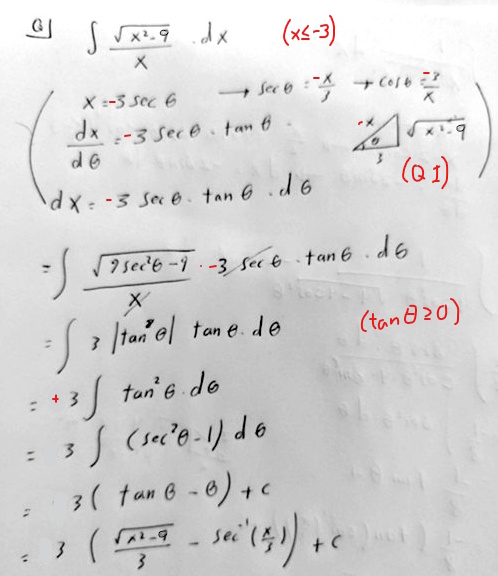 Q) ∫ √(x²-9) / x . dx (x≤-3)
x = -3 sec θ → sec θ = -x/3 → cos θ = -3/x
dx/dθ = -3 sec θ . tan θ . -x θ 3 √(x²-9)
dx = -3 sec θ . tan θ . dθ (Q I)
= ∫ √(9sec²θ-9) / x . -3 sec θ . tan θ . dθ
= ∫ 3 |tan θ| tan θ . dθ (tan θ ≥ 0)
= + 3 ∫ tan² θ . dθ
= 3 ∫ (sec²θ - 1) dθ
= 3 ( tan θ - θ) + c
= 3 ( √(x²-9) / 3 - sec⁻¹(x/3) ) + c